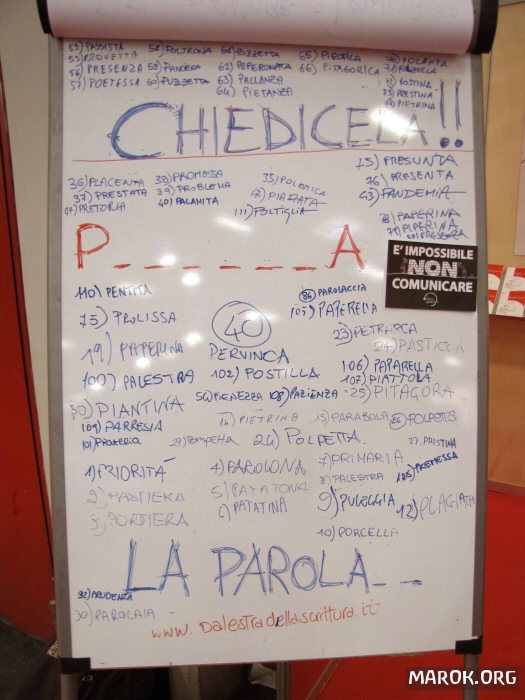 55) PASSISTA 58) FOLTRONA 60) ROZZETTA 65) PIROFILA 70) POLENTA
55) PROVETTA 59) PANDERA 62) PEPERONATA 66) PITAGORICA
56) PRESENZA 60) PUZZETTA 63) PALLANZA 72) POSTINA
57) POETESSA 64) PIETANZA 73) PRESTINA
74) PIETRINA
CHIEDICELA!!
75) PRESUNTA
36) PLACENTA 38) PROMESSA 35) POLEMICA 76) PRESENTA
37) PRESTATA 39) PROBLEMA 42) PIAZZATA 43) PANDEMIA
17) PRETORIA 40) PALAMITA 111) POLTIGLIA
78) PAPERINA
79) PIPERINA
80) PRESENZA
P _ _ _ _ _ _ A
E' IMPOSSIBILE
NON
COMUNICARE
110) PENTITA 86) PAROLACCIA
75) PROLISSA 40 105) PAPERELLA
19) PAPERINA PERVINCA 23) PETRARCA 24) PASTICCA
100) PALESTRA 102) POSTILLA 106) PAPARELLA
107) PIATTOLA
30) PIANTINA 54) PIENEZZA 108) PAZIENZA 25) PITAGORA
109) PARRESIA 14) PIETRINA 15) PARABOLA 26) POLPETTE
101) PRATERIA 21) POMPETTA 24) POLPETTA 27) PRISTINA
1) PRIORITÀ 4) PAROLONA 7) PRIMARIA 103) PREMESSA
2) MARTIERA 5) PATATONA 8) PALESTRA
3) PORTIERA 6) PATATINA 9) PULEGGIA 12) PLAGIATA
10) PORCELLA
LA PAROLA _ _
92) PRUDENZA
30) PAROLAIA
www.palestradellascrittura.it
MAROK.ORG